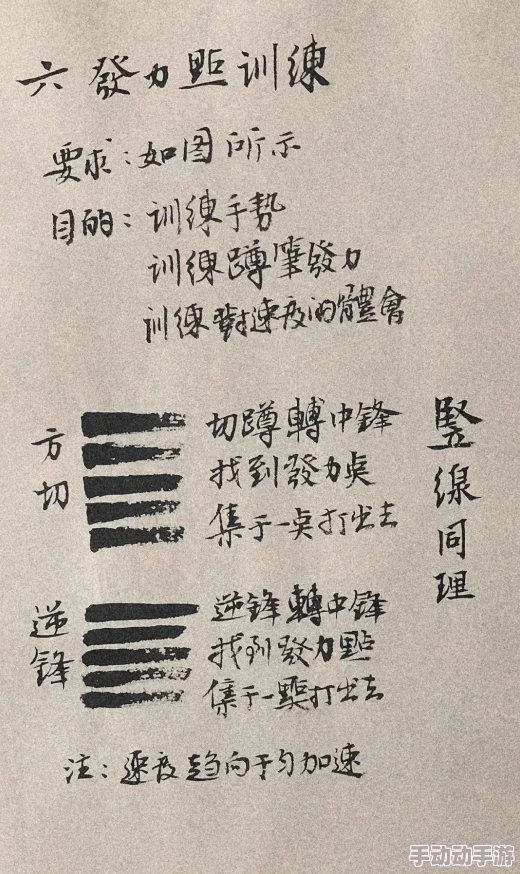 六 發力點训練
要求：如图所示
目的：训練手勢
训練蹲筆發力
训練對速度的體會
方切
切蹲轉中鋒
找到發力点
集于一点打出去
逆鋒
逆鋒轉中鋒
找到發力點
集于一點打出去
竪線同理
注：速度趋向于匀加速
手动动手游